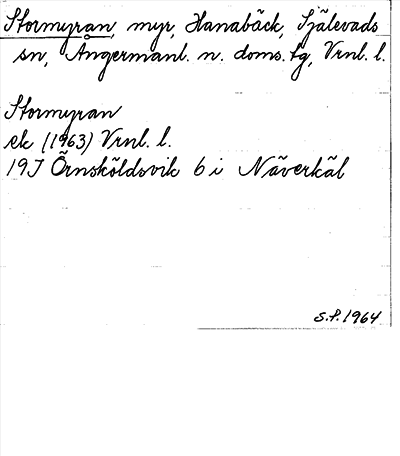 Stormyran, myr, Hanabäck, Själevads
sn, Ångermanl. n. doms. tg, Vrnl. l.
Stormyran
ek (1963) Vrnl. l.
19J Örnsköldsvik 6 i Näverkäl
S.P. 1964